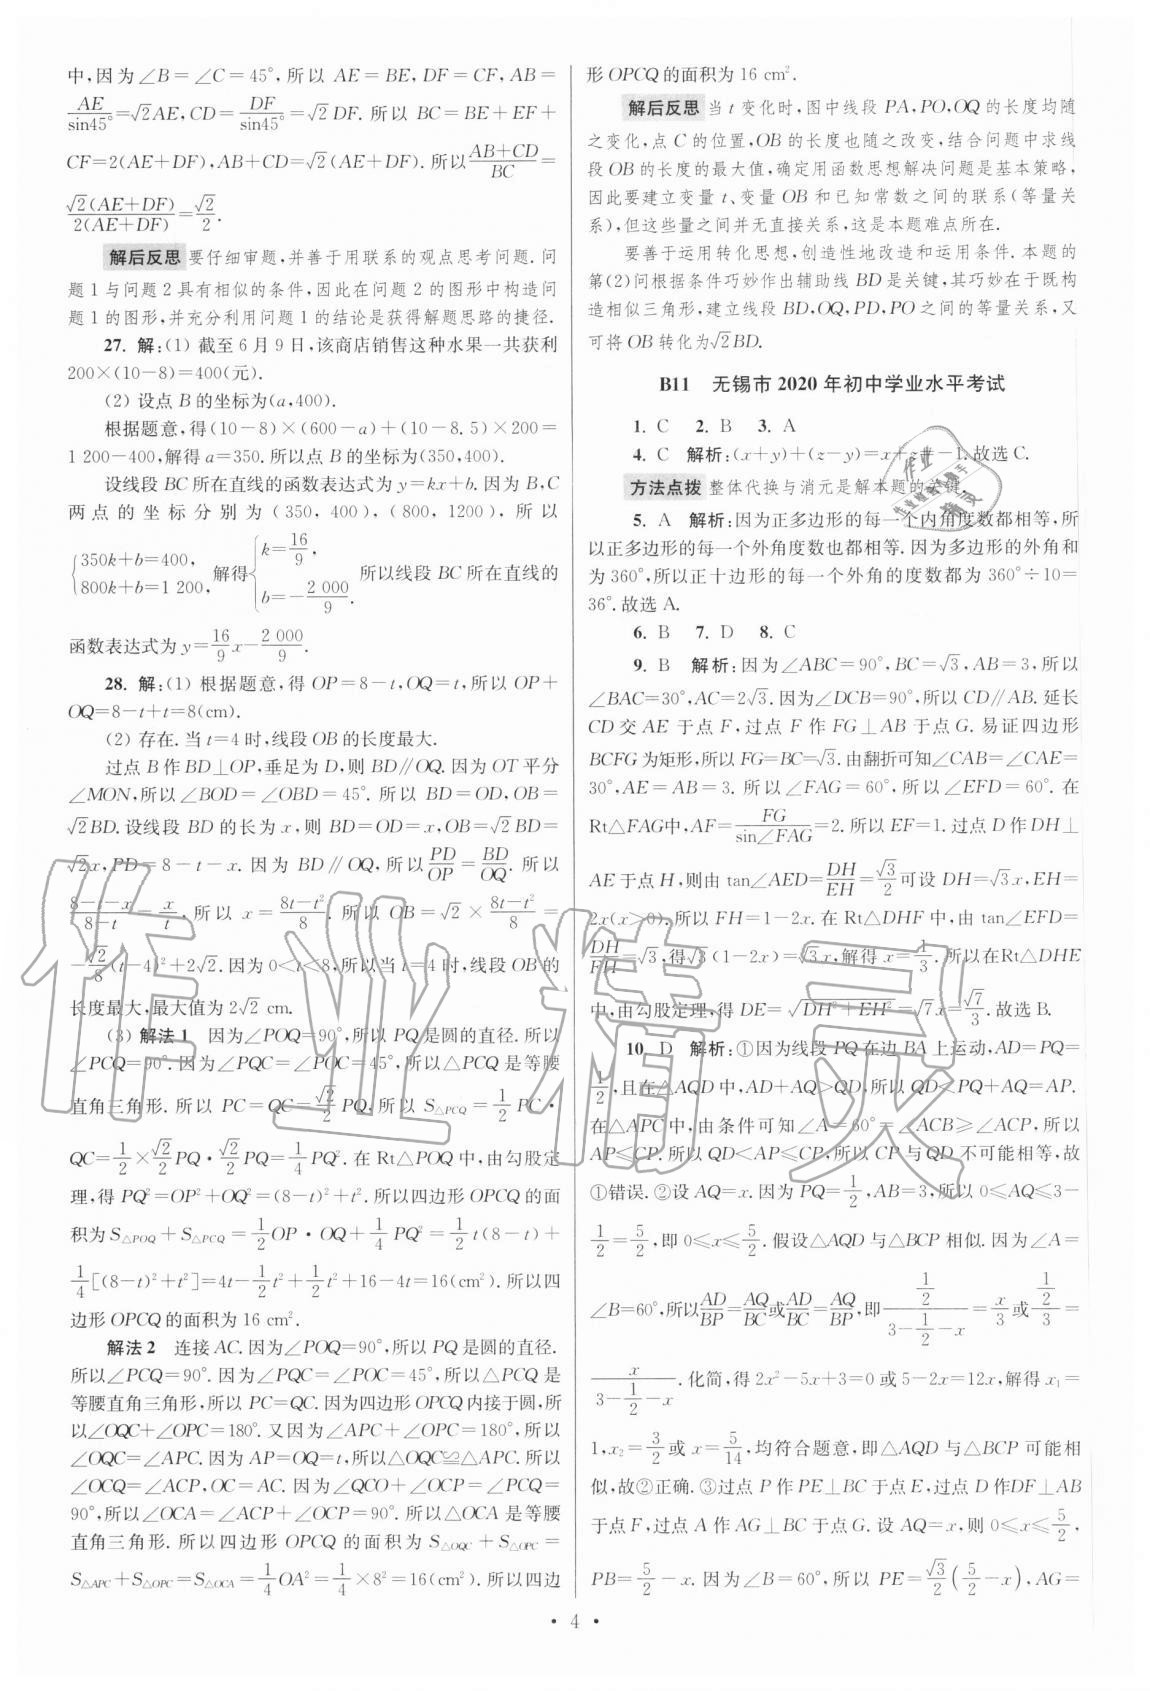 中,因为∠B=∠C=45°,所以 AE=BE,DF=CF,AB=
AE/sin45°=√2AE,CD=DF/sin45°=√2DF.所以 BC=BE+EF+
CF=2(AE+DF),AB+CD=√2(AE+DF).所以(AB+CD)/BC=
√2(AE+DF)/2(AE+DF)=√2/2.
解后反思 要仔细审题,并善于用联系的观点思考问题.问
题1与问题2具有相似的条件,因此在问题2的图形中构造问
题1的图形,并充分利用问题1的结论是获得解题思路的捷径.
27. 解:(1) 截至6月9日,该商店销售这种水果一共获利
200×(10-8)=400(元).
(2) 设点B的坐标为(a,400).
根据题意,得(10-8)×(600-a)+(10-8.5)×200=
1 200-400,解得a=350.所以点B的坐标为(350,400).
设线段BC所在直线的函数表达式为y=kx+b.因为B,C
两点的坐标分别为(350,400),(800,1200),所以
{350k+b=400, 800k+b=1 200, 解得{k=16/9, b=-2 000/9. 所以线段BC所在直线的
函数表达式为y=16/9x-2 000/9.
28. 解:(1) 根据题意,得OP=8-t,OQ=t,所以OP+
OQ=8-t+t=8(cm).
(2) 存在.当t=4时,线段OB的长度最大.
过点B作BD⊥OP,垂足为D,则BD∥OQ.因为OT平分
∠MON,所以∠BOD=∠OBD=45°.所以BD=OD,OB=
√2BD.设线段BD的长为x,则BD=OD=x,OB=√2BD=
√2x,PD=8-t-x.因为BD∥OQ,所以PD/OP=BD/OQ.所以
(8-t-x)/(8-t)=x/t,所以x=(8t-t²)/8.所以OB=√2×(8t-t²)/8=
-√2/8(t-4)²+2√2.因为0<t<8,所以当t=4时,线段OB的
长度最大,最大值为2√2 cm.
(3) 解法1 因为∠POQ=90°,所以PQ是圆的直径.所以
∠PCQ=90°.因为∠PQC=∠POC=45°,所以△PCQ是等腰
直角三角形.所以PC=QC=√2/2PQ,所以S△PCQ=1/2PC·
QC=1/2×√2/2PQ·√2/2PQ=1/4PQ².在Rt△POQ中,由勾股定
理,得PQ²=OP²+OQ²=(8-t)²+t².所以四边形OPCQ的面
积为S△POQ+S△PCQ=1/2OP·OQ+1/4PQ²=1/2t(8-t)+
1/4[(8-t)²+t²]=4t-1/2t²+1/2t²+16-4t=16(cm²).所以四
边形OPCQ的面积为16 cm².
解法2 连接AC.因为∠POQ=90°,所以PQ是圆的直径.
所以∠PCQ=90°.因为∠PQC=∠POC=45°,所以△PCQ是
等腰直角三角形,所以PC=QC.因为四边形OPCQ内接于圆,所
以∠OQC+∠OPC=180°.又因为∠APC+∠OPC=180°,所以
∠OQC=∠APC.因为AP=OQ=t,所以△OQC≌△APC.所以
∠OCQ=∠ACP,OC=AC.因为∠QCO+∠OCP=∠PCQ=
90°,所以∠OCA=∠ACP+∠OCP=90°.所以△OCA是等腰
直角三角形.所以四边形OPCQ的面积为S△OQC+S△OPC=
S△APC+S△OPC=S△OCA=1/4OA²=1/4×8²=16(cm²).所以四边
形OPCQ的面积为16 cm².
解后反思 当t变化时,图中线段PA,PO,OQ的长度均随
之变化,点C的位置,OB的长度也随之改变,结合问题中求线
段OB的长度的最大值,确定用函数思想解决问题是基本策略,
因此要建立变量t、变量OB和已知常数之间的联系(等量关
系),但这些量之间并无直接关系,这是本题难点所在.
要善于运用转化思想,创造性地改造和运用条件.本题的
第(2)问根据条件巧妙作出辅助线BD是关键,其巧妙在于既构
造相似三角形,建立线段BD,OQ,PD,PO之间的等量关系,又
可将OB转化为√2BD.
B11 无锡市2020年初中学业水平考试
1. C 2. B 3. A
4. C 解析:(x+y)+(z-y)=x+z=-1.故选C.
方法点拨 整体代换与消元是解本题的关键.
5. A 解析:因为正多边形的每一个内角度数都相等,所
以正多边形的每一个外角度数也都相等.因为多边形的外角和
为360°,所以正十边形的每一个外角的度数都为360°÷10=
36°.故选A.
6. B 7. D 8. C
9. B 解析:因为∠ABC=90°,BC=√3,AB=3,所以
∠BAC=30°,AC=2√3.因为∠DCB=90°,所以CD∥AB.延长
CD交AE于点F,过点F作FG⊥AB于点G.易证四边形
BCFG为矩形,所以FG=BC=√3.由翻折可知∠CAB=∠CAE=
30°,AE=AB=3.所以∠FAG=60°,所以∠EFD=60°.在
Rt△FAG中,AF=FG/sin∠FAG=2.所以EF=1.过点D作DH⊥
AE于点H,则由tan∠AED=DH/EH=√3/2可设DH=√3x,EH=
2x(x>0).所以FH=1-2x.在Rt△DHF中,由tan∠EFD=
DH/FH=√3,得√3(1-2x)=√3x,解得x=1/3.所以在Rt△DHE
中,由勾股定理,得DE=√(DH²+EH²)=√7x=√7/3.故选B.
10. D 解析:①因为线段PQ在边BA上运动,AD=PQ=
1/2,且在△AQD中,AD+AQ>QD,所以QD<PQ+AQ=AP.
在△APC中,由条件可知∠A=60°=∠ACB≥∠ACP,所以
AP≤CP.所以QD<AP≤CP,所以CP与QD不可能相等,故
①错误.②设AQ=x.因为PQ=1/2,AB=3,所以0≤AQ≤3-
1/2=5/2,即0≤x≤5/2.假设△AQD与△BCP相似.因为∠A=
∠B=60°,所以AD/BP=AQ/BC或AD/BC=AQ/BP,即(1/2)/(3-1/2-x)=x/3或(1/2)/3=
x/(3-1/2-x).化简,得2x²-5x+3=0或5-2x=12x,解得x₁=
1,x₂=3/2或x=5/14,均符合题意,即△AQD与△BCP可能相
似,故②正确.③过点P作PE⊥BC于点E,过点D作DF⊥AB
于点F,过点A作AG⊥BC于点G.设AQ=x,则0≤x≤5/2,
PB=5/2-x.因为∠B=60°,所以PE=√3/2(5/2-x),AG=
· 4 ·
作业精灵